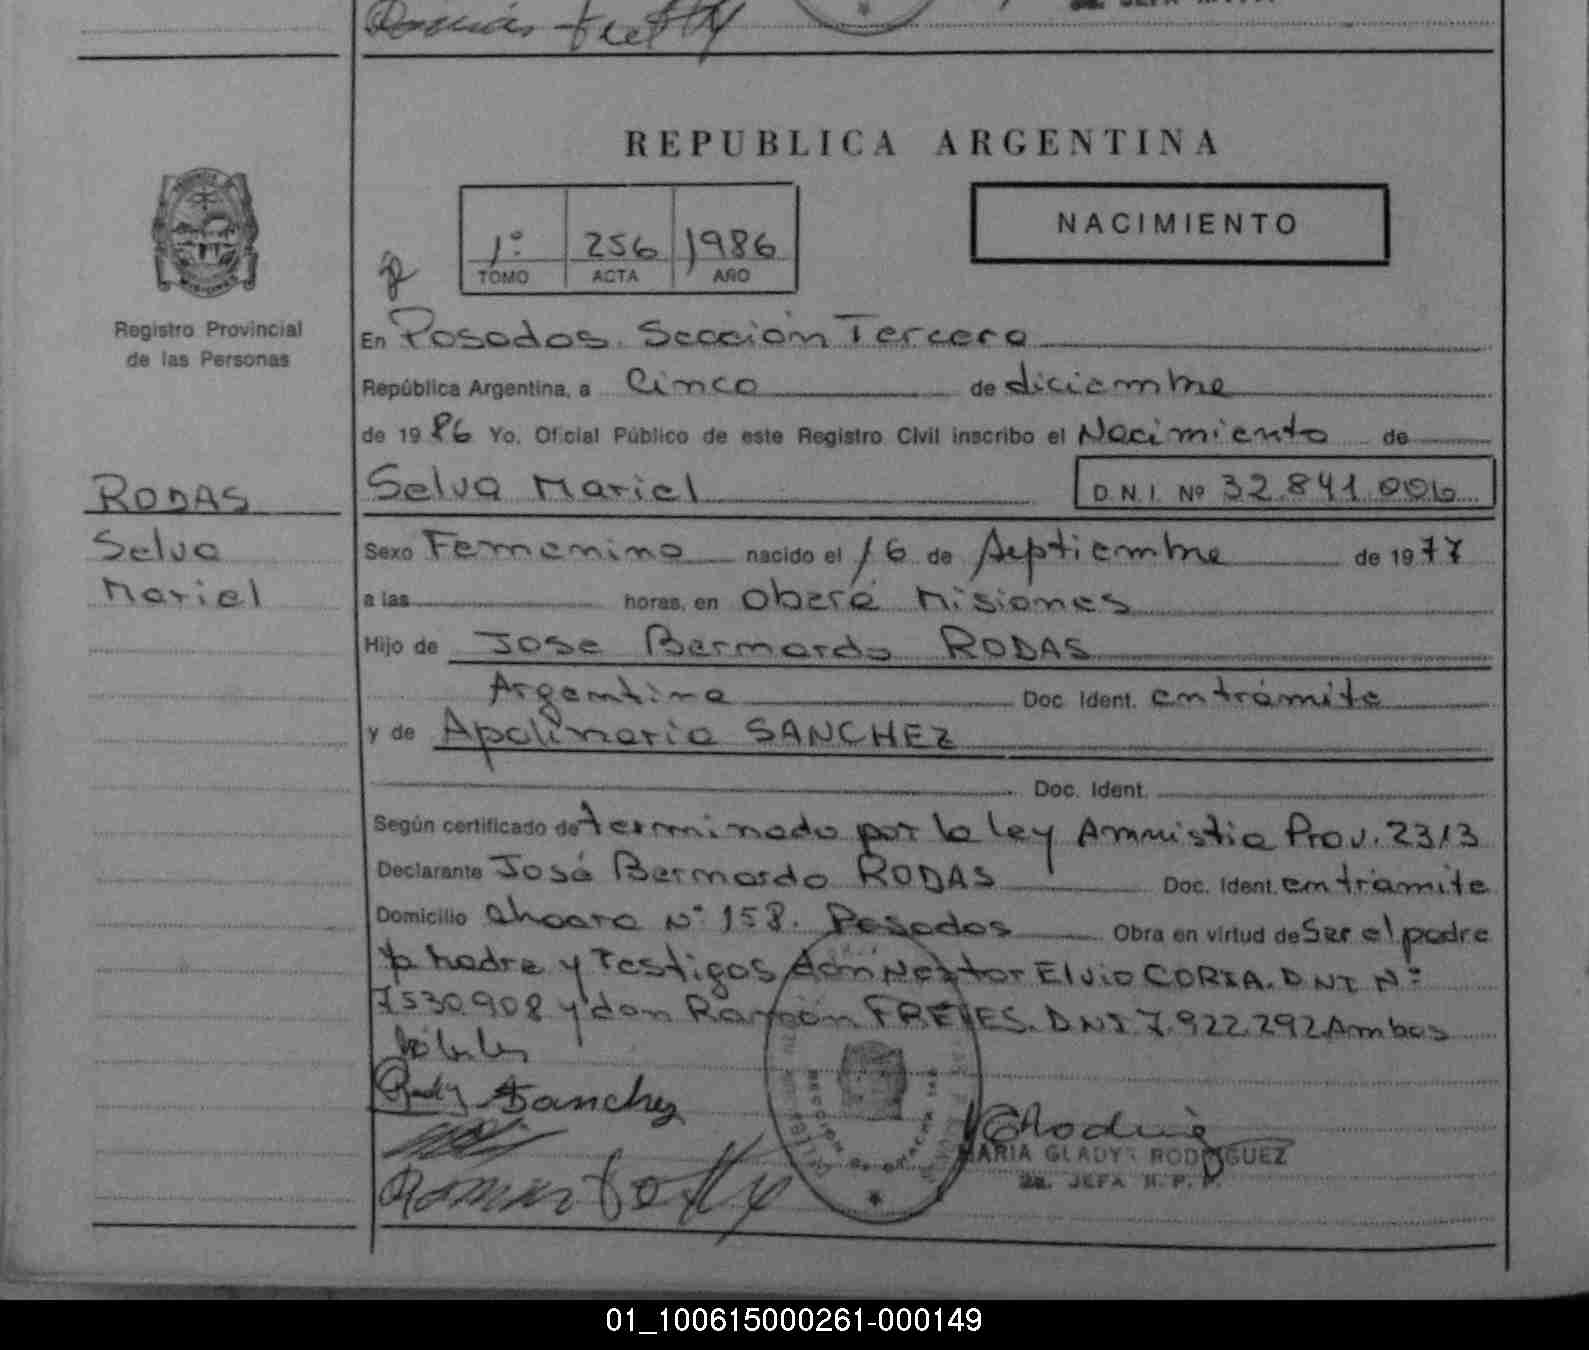 REPUBLICA ARGENTINA
NACIMIENTO
1º 256 1986
TOMO ACTA AÑO
Registro Provincial
de las Personas
En Posadas. Sección Tercera
República Argentina, a Cinco de diciembre
de 1986 Yo, Oficial Público de este Registro Civil inscribo el Nacimiento de
Selva Mariel D.N.I. Nº 32.841.006
RODAS
Selva
Mariel
Sexo Femenino nacido el 16 de Septiembre de 1977
a las horas, en Oberá Misiones
Hijo de Jose Bernardo RODAS
Argentina Doc. Ident. en trámite
y de Apolinaria SANCHEZ
Doc. Ident.
Según certificado de terminado por la ley Amnistia Prov. 2313
Declarante José Bernardo RODAS Doc. Ident. en trámite
Domicilio Chacra Nº 158. Posadas Obra en virtud de Ser el padre
Madre y Testigos don Nestor Elvio CORIA. DNI Nº
7530.908 y don Ramón FREYES. DNI 7.922.292 Ambos
hábiles
Sanchez
MARIA GLADYS RODRIGUEZ
2a. JEFA R. P. P.
01_100615000261-000149